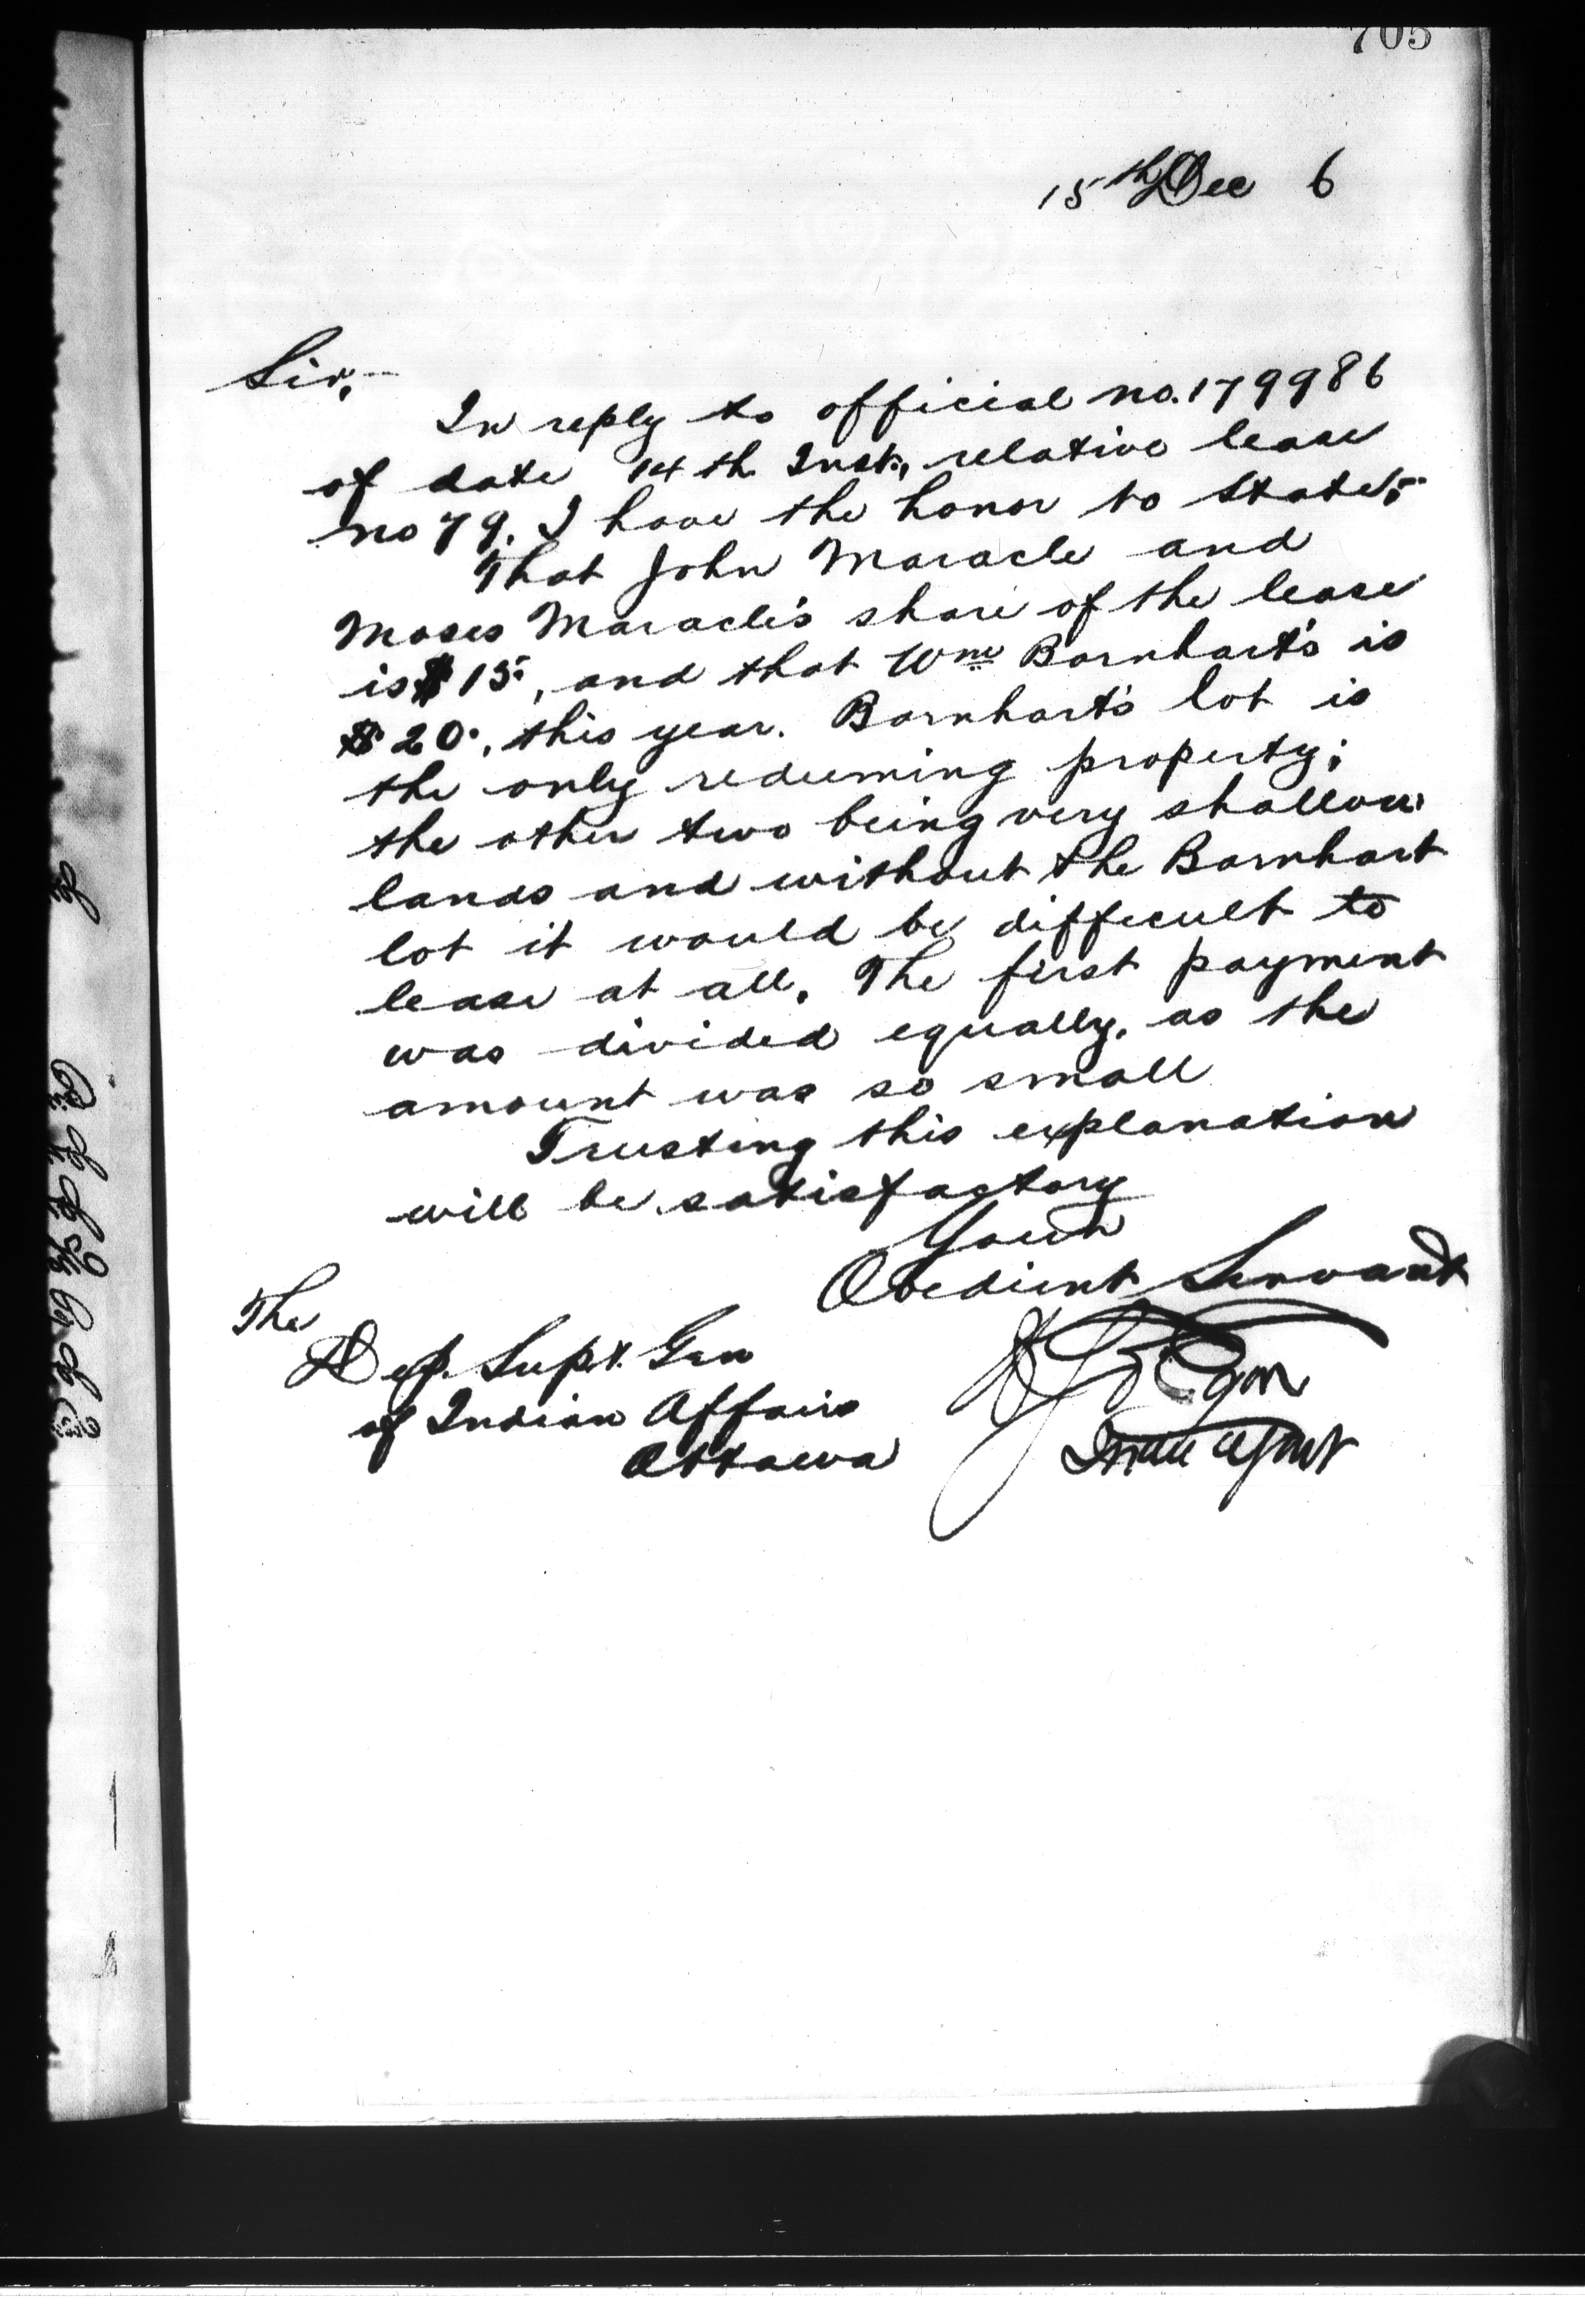 705
15th Dec 6
Sir,-
In reply to official no. 179986
of date 14th Inst., relative lease
no 79. I have the honor to state:-
That John Maracle and
Moses Maracle's share of the lease
is $15, and that Wm Barnhart's is
$20, this year. Barnhart's lot is
the only redeeming property;
the other two being very shallow
lands and without the Barnhart
lot it would be difficult to
lease at all. The first payment
was divided equally, as the
amount was so small
Trusting this explanation
will be satisfactory
Your
Obedient Servant
The
Dep. Supt. Gen
of Indian Affairs
Ottawa
Indian Agent